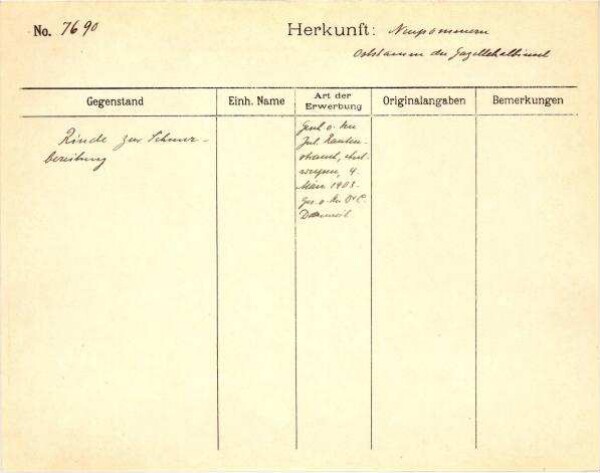 No. 7690
Herkunft: Neupommern
Oststamm der Gazellehalbinsel
Gegenstand
Einh. Name
Art der
Erwerbung
Originalangaben
Bemerkungen
Rinde zur Schnur-
bereitung
Gesch. v.
Jul.
4.
März 1903.
Ges. v.